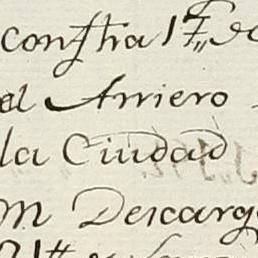 contra 17„ de
el Arriero
la Ciudad
m Descarg